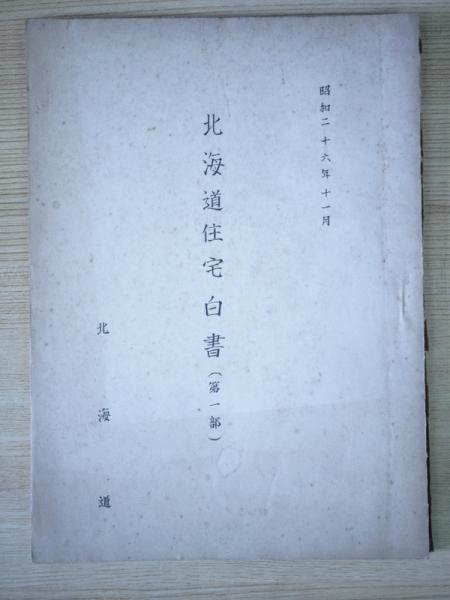 昭和二十六年十一月
北海道住宅白書（第一部）
北海道